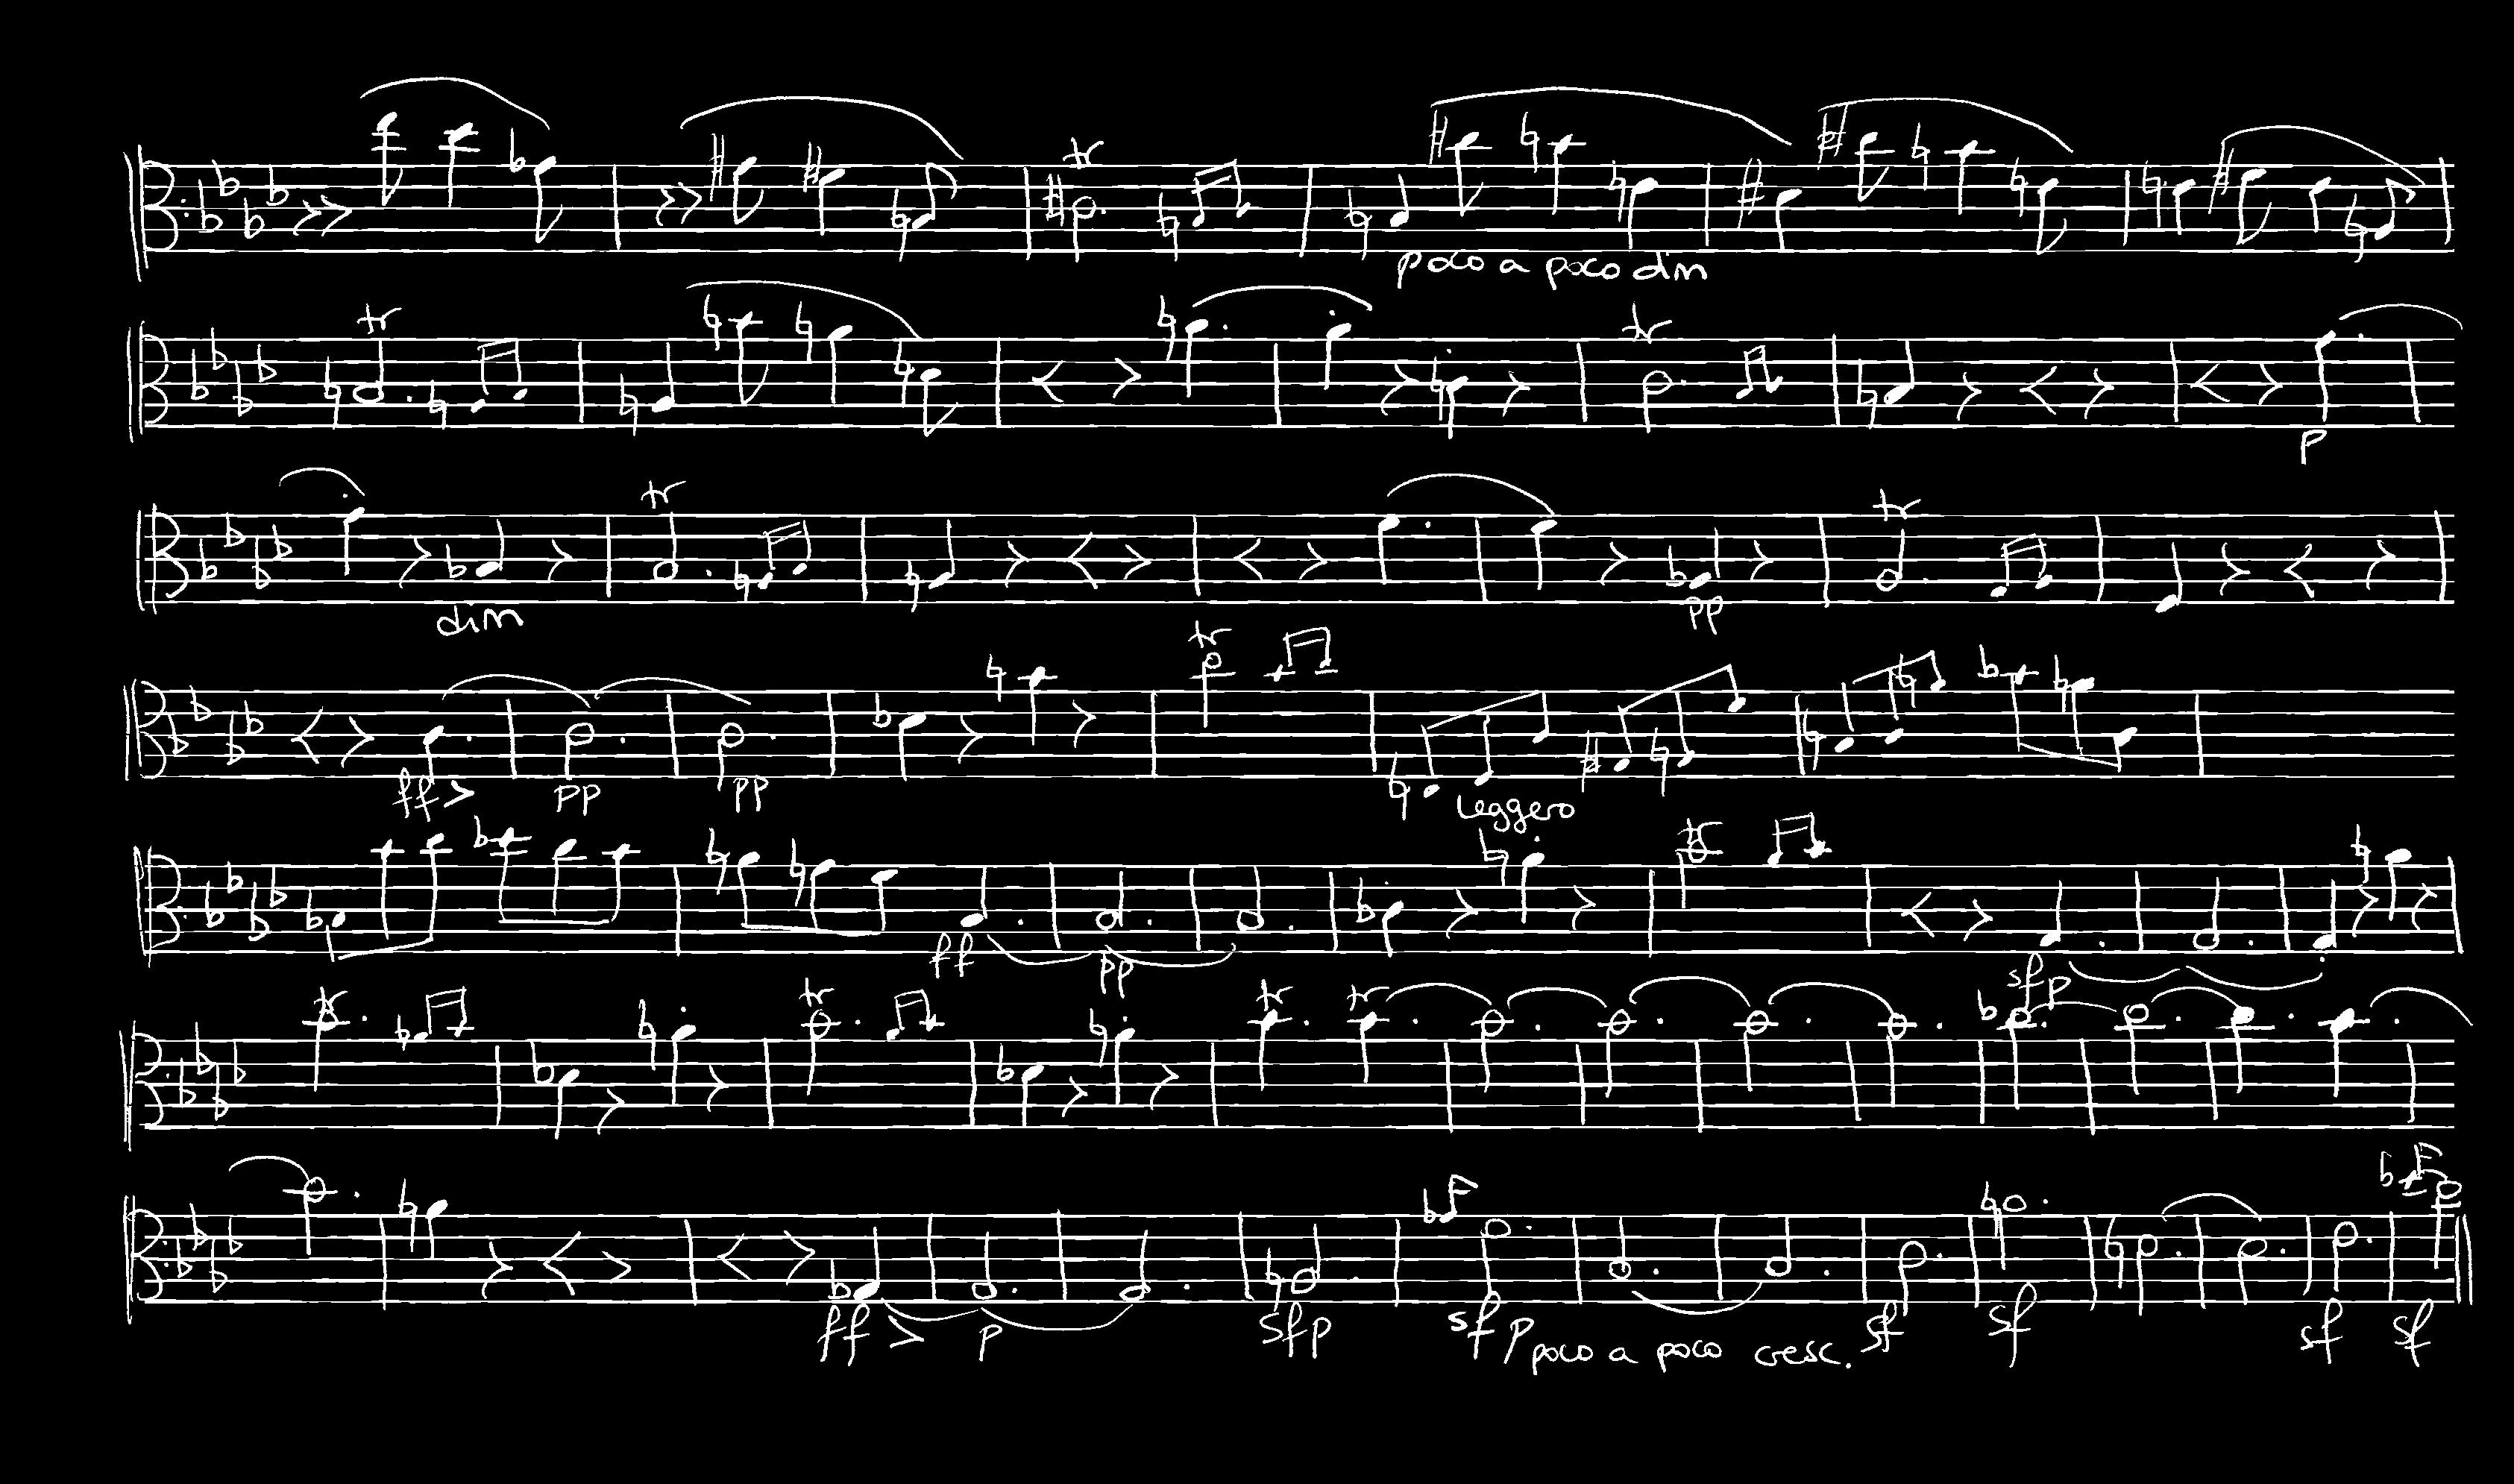 tr
poco a poco dim
tr tr
p
tr tr
dim pp
tr
ff pp pp leggero
tr
ff pp sfp
tr tr tr tr
ff p sfp sf p poco a poco cresc. sf sf sf sf